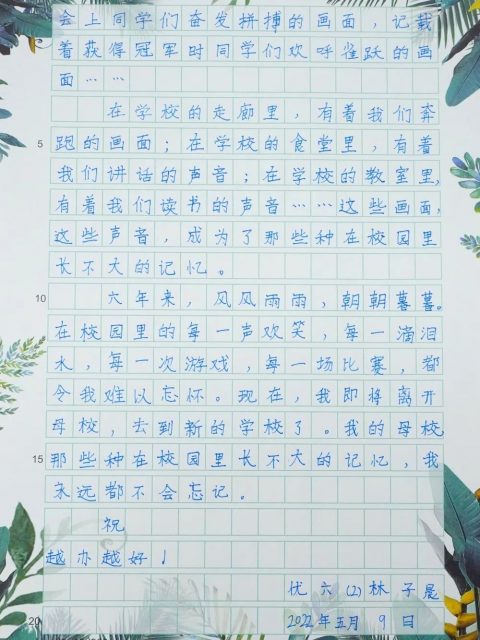 会上同学们奋发拼搏的画面，记载
着获得冠军时同学们欢呼雀跃的画
面……
在学校的走廊里，有着我们奔
5 跑的画面；在学校的食堂里，有着
我们讲话的声音；在学校的教室里，
有着我们读书的声音……这些画面，
这些声音，成为了那些种在校园里
长不大的记忆。
10 六年来，风风雨雨，朝朝暮暮。
在校园里的每一声欢笑，每一滴泪
水，每一次游戏，每一场比赛，都
令我难以忘怀。现在，我即将离开
母校，去到新的学校了。我的母校
15 那些种在校园里长不大的记忆，我
永远都不会忘记。
祝
越办越好！
优六(2)林子晨
20 2022年五月9日